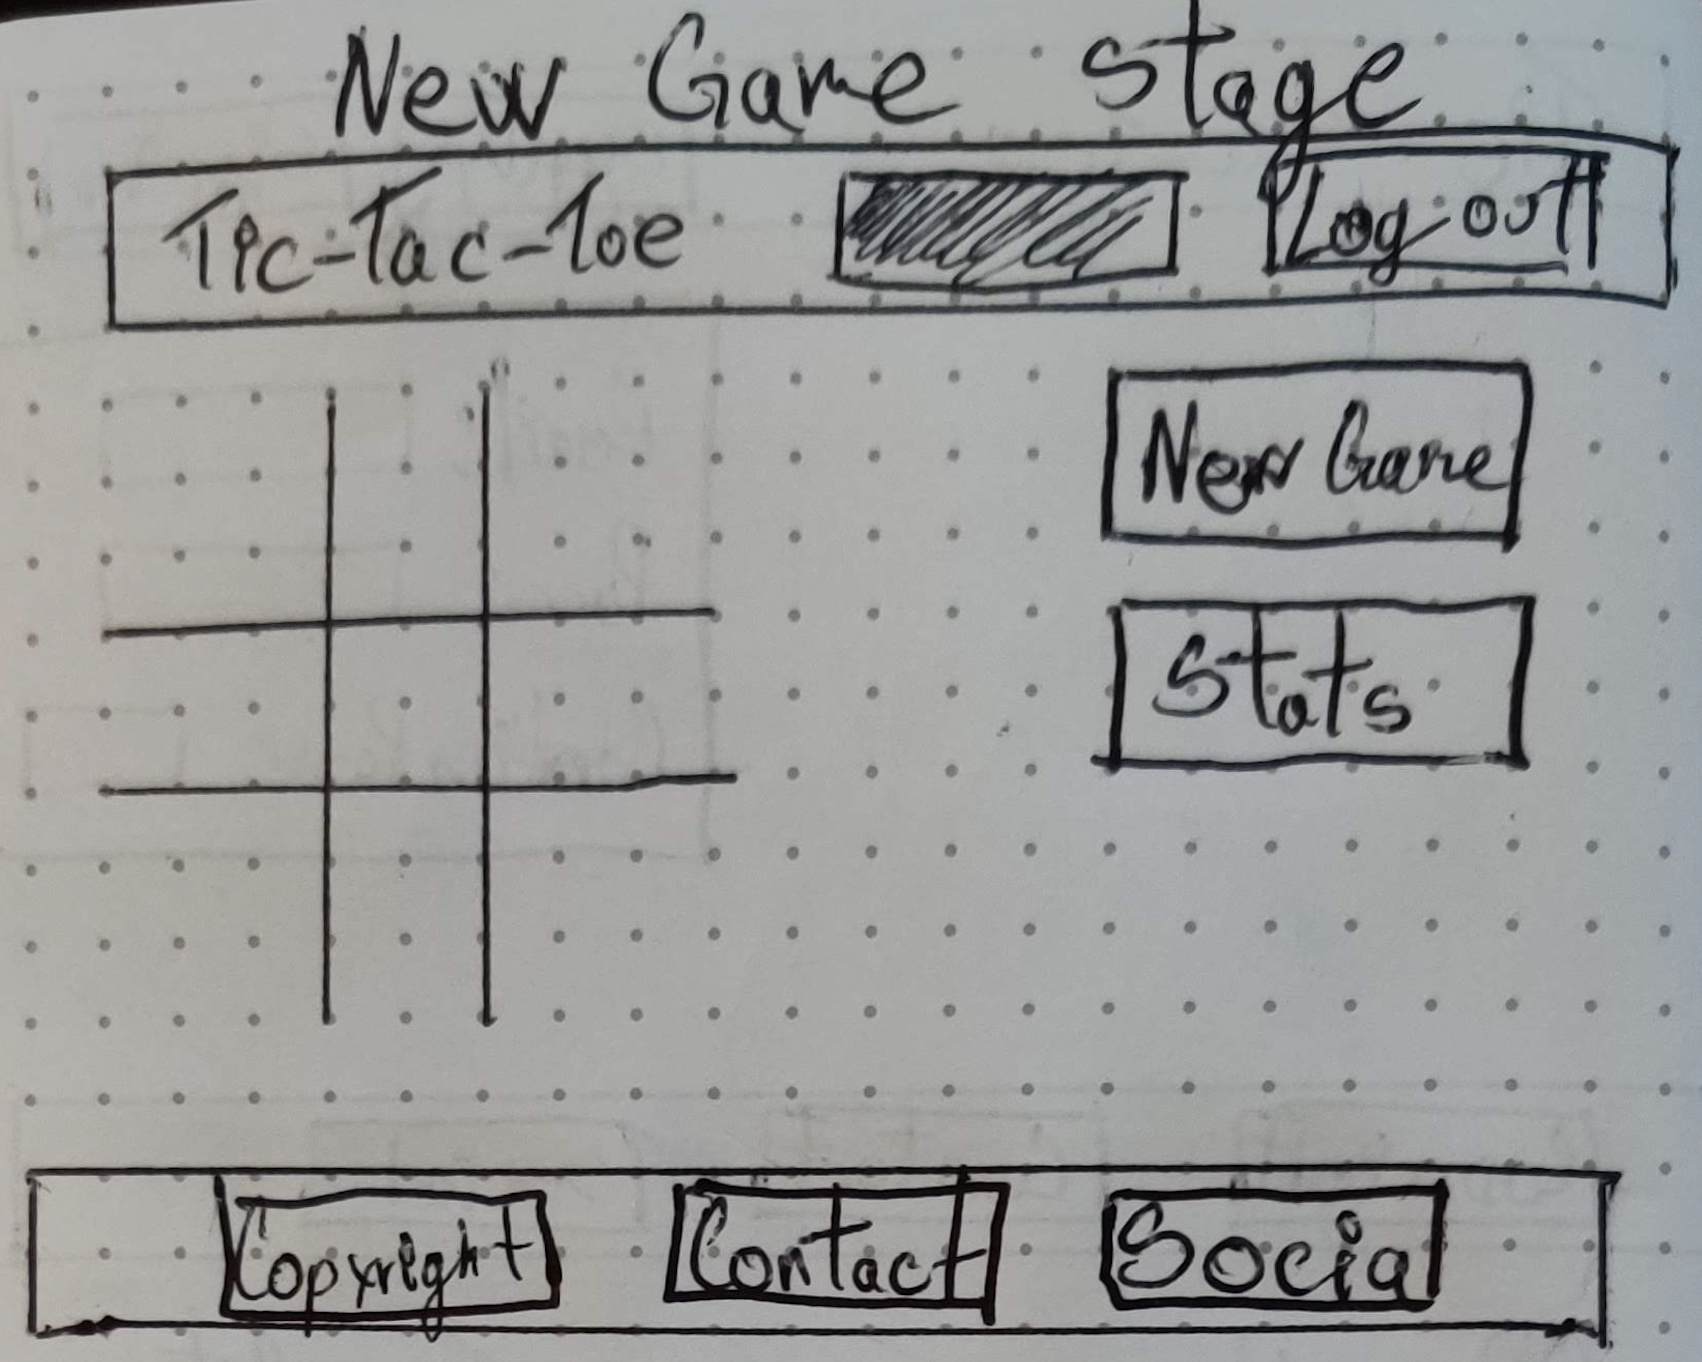 New Game Stage
Tic-Tac-Toe Log out
New Game
Stats
Copyright Contact Social